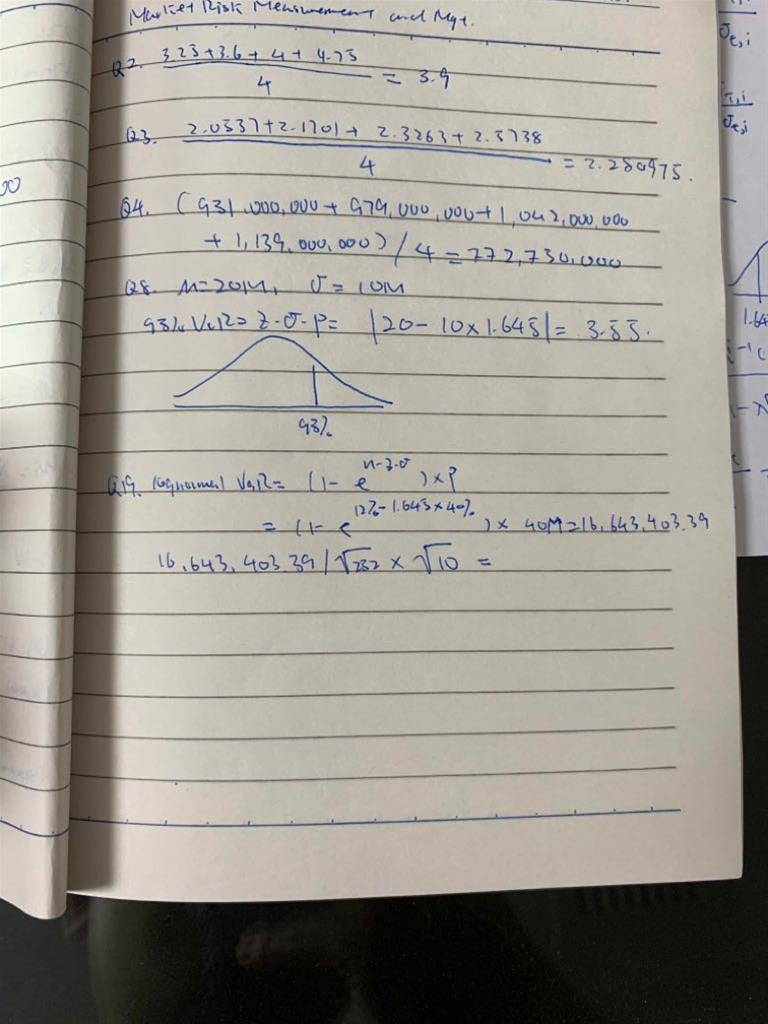 Market Risk Measurement and Mgt.
Q2. 3.25+3.6+4+4.75 / 4 = 3.9
Q3. 2.0537+2.1701+2.3263+2.5758 / 4 = 2.280975.
Q4. (931,000,000+979,000,000+1,042,000,000
+1,139,000,000)/4=772,730,000
Q8. M=20M, σ=10M
95% VaR=z·σ-P= |20-10×1.645|= 3.55.
95%
Q19. lognormal VaR= (1-e^{u-z·σ})×P
= (1-e^{12%-1.645×40%})× 40M=16,643,403.39
16,643,403.39/√252 × √10 =
00
σe,i
σe,i